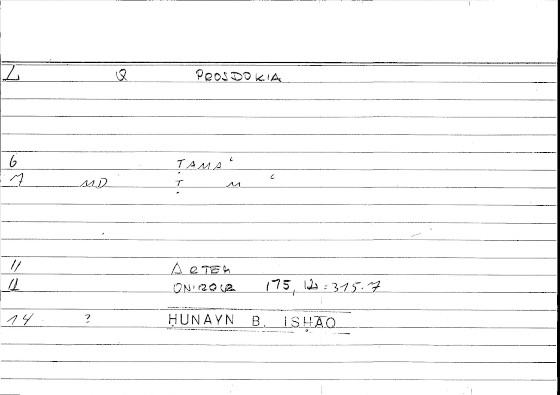 1 Q PROSDOKIA
6 ṬAMAʿ
7 MD Ṭ M ʿ
11 ARTEM
12 ONIROCR 175, 12 = 315.7
14 ? ḤUNAYN B. ISḤĀQ